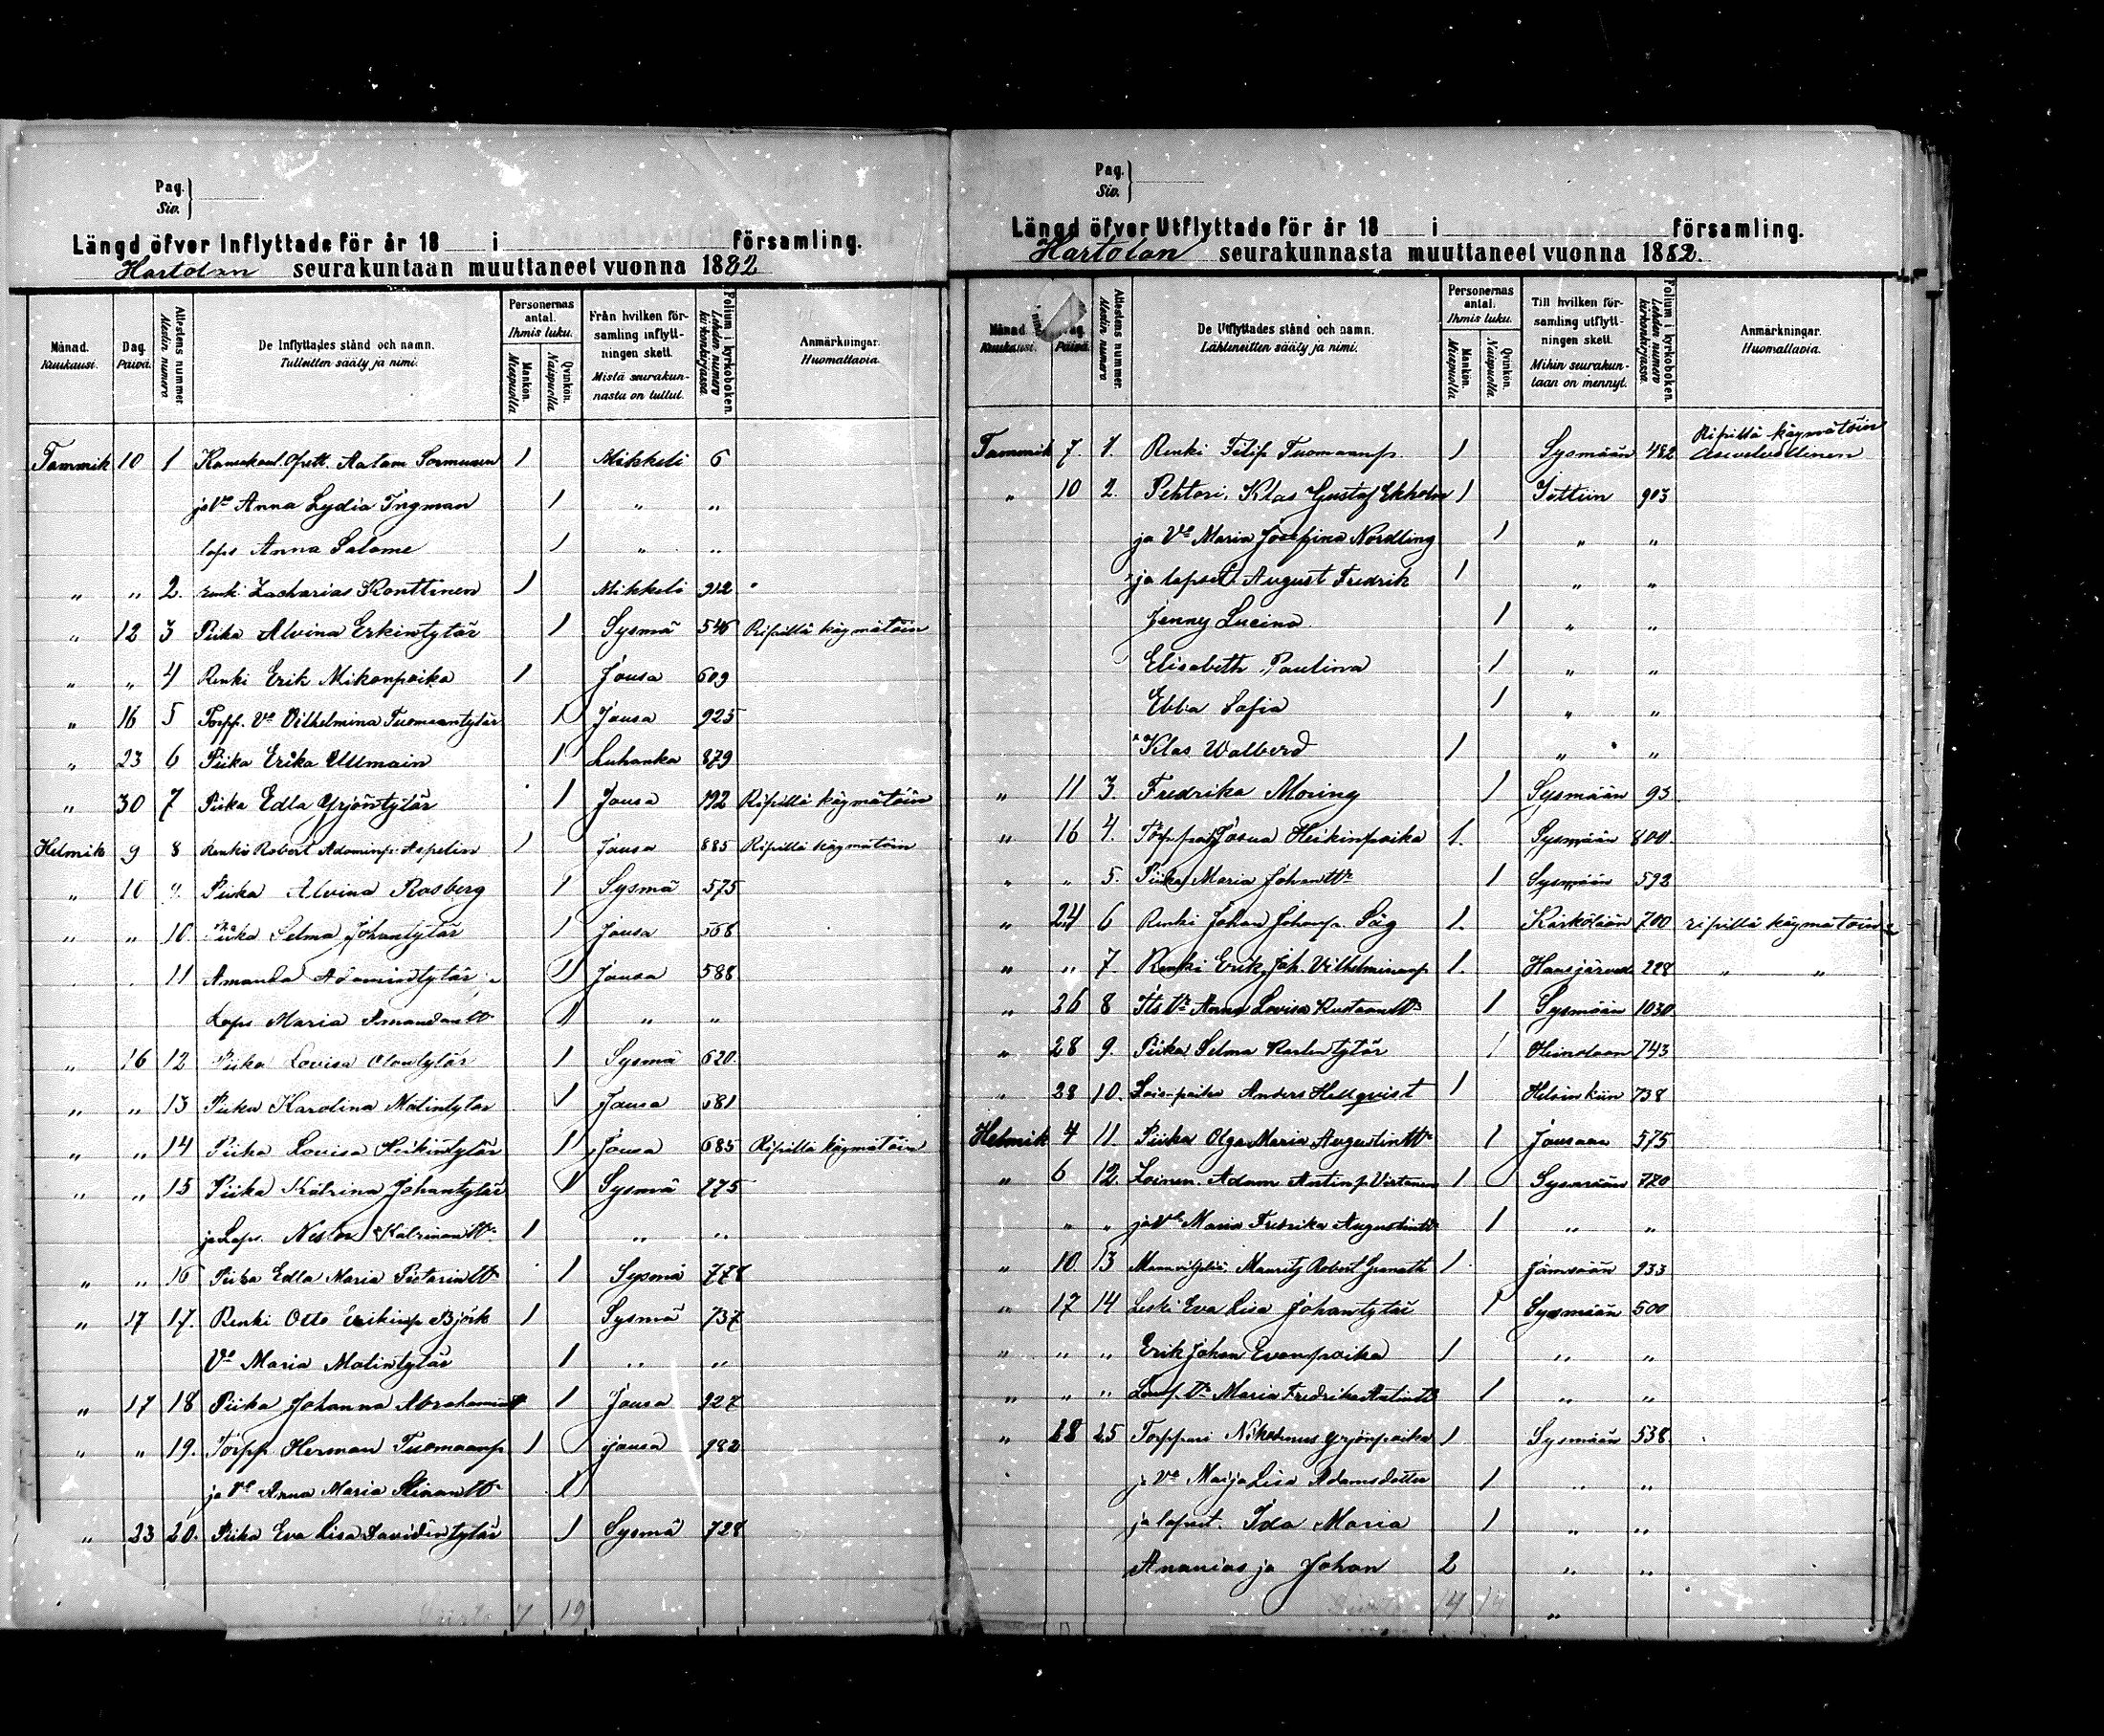 Pag.
Siv.
Längd öfver Inflyttade för år 18 i församling.
Hartolan seurakuntaan muuttaneet vuonna 1882
Månad. Kuukausi.
Dag. Päivä.
Attestens nummer. Alestin numero
De Inflyttades stånd och namn. Tulleitten sääly ja nimi.
Personernas antal. Ihmis luku.
Mankön. Miespuolia
Qvinkön. Naispuolia
Från hvilken församling inflyttningen skett. Mistä seurakunnasta on tullut.
Folium i kyrkoboken. Lehden numero kirkonkirjassa.
Anmärkningar. Huomattavia.
Tammik 10 1 Aatam Sormunen 1 Mikkeli 6
ja Vo Anna Lydia Ingman 1 " "
laps Anna Salome 1 " "
" " 2. renki Zacharias Konttinen 1 Mikkeli 912
" 12 3 Piika Alvina Erkintytär 1 Sysmä 546 Ripillä käymätöin
" " 4 Renki Erik Mikonpoika 1 Jousa 609
" 16 5 Torpp. Vo Vilhelmina Tuomaantytär 1 Jousa 925
" 23 6 Piika Erika Ullmain 1 Luhanka 879
" 30 7 Piika Edla Yrjöntytär 1 Jousa 192 Ripillä käymätöin
Helmik 9 8 Renki Robert Adaminp. Aspelin 1 Jousa 885 Ripillä käymätöin
" 10 9 Piika Alvina Rosberg 1 Sysmä 575
" " 10 Piika Selma Johantytär 1 Jousa 568
11 Amanda Adamintytär 1 Jousa 588
Laps Maria Amandan tr 1 " "
" 16 12 Piika Lovisa Olontytär 1 Sysmä 620
" " 13 Piika Karolina Matintytär 1 Jousa 681
" " 14 Piika Lovisa Heikintytär 1 Jousa 685 Ripillä käymätöin
" " 15 Piika Katrina Johantytär 1 Sysmä 775
ja Laps. Nestor Katrinan 1 " "
" " 16 Piika Edla Maria Pietarin tr 1 Sysmä 778
" 17 17. Renki Otto Erikinp Björk 1 Sysmä 737
Vo Maria Matintytär 1 " "
" 17 18 Piika Johanna Abrahamin tr 1 Jousa 927
" " 19. Torpp Herman Tuomaanp 1 Jousa 982
ja Vo Anna Maria Stinan tr 1
" 23 20. Piika Eva Lisa Davidintytär 1 Sysmä 728
7 19
Pag.
Siv.
Längd öfver Utflyttade för år 18 i församling.
Hartolan seurakunnasta muuttaneet vuonna 1882.
Månad. Kuukausi.
Dag. Päivä.
Attestens nummer. Alestin numero
De Utflyttades stånd och namn. Lähteneitten sääly ja nimi.
Personernas antal. Ihmis luku.
Mankön. Miespuolia
Qvinkön. Naispuolia
Till hvilken församling utflyttningen skett. Mihin seurakuntaan on mennyt.
Folium i kyrkoboken. Lehden numero kirkonkirjassa.
Anmärkningar. Huomattavia.
Ripillä käymätöin
Tammik 7. 1. Renki Filip Tuomaanp. 1 Sysmään 482 Asevelvollinen
" 10 2. Pehtori, Klas Gustaf Ekholm 1 Iittiin 903
ja Vo Maria Josefina Nordling 1 " "
ja lapset August Fredrik 1 " "
Jenny Lucina 1 " "
Elisabeth Paulina 1 " "
Ebba Sofia 1 " "
Klas Walberd 1 " "
" 11 3. Fredrika Moring 1 Sysmään 93
" 16 4. Josua Heikinpoika 1. Sysmään 800.
" " 5. Piika Maria Johan tr 1 Sysmään 592
" 24 6 Renki Johan Johanp. Säg 1. Kärkölään 700 ripillä käymätöin
" " 7. Renki Erik Joh. Vilhelminanp 1. Hausjärvelle 228 " "
" 26 8 Its Vo Anna Lovisa Kustaan tr 1 Sysmään 1030
" 28 9. Piika Selma Karlentytär 1 Heinolaan 743
" 28 10. Lois-poika Anders Hellqvist 1 Helsinkiin 738
Helmik 4 11. Piika Olga Maria Augustin tr 1 Jousaan 575
" 6 12. Loinen. Adam Antinp. Virtanen 1 Sysmään 720
" " ja Vo Maria Fredrika Augustin tr 1 " "
" 10 13 Mauritz Robert Granath 1 Jämsään 933
" 17 14 Leski Eva Lisa Johantytär 1 Sysmään 500
" " " Erik Johan Evanpoika 1 " "
" " " Maria Fredrika Antin tr 1 " "
" 28 25 Torppari Nikodemus Yrjönpoika 1 Sysmään 538
ja Vo Maija Lisa Adamsdotter 1 " "
ja lapset. Ida Maria 1 " "
Ananias ja Johan 2 " "
14 14 "